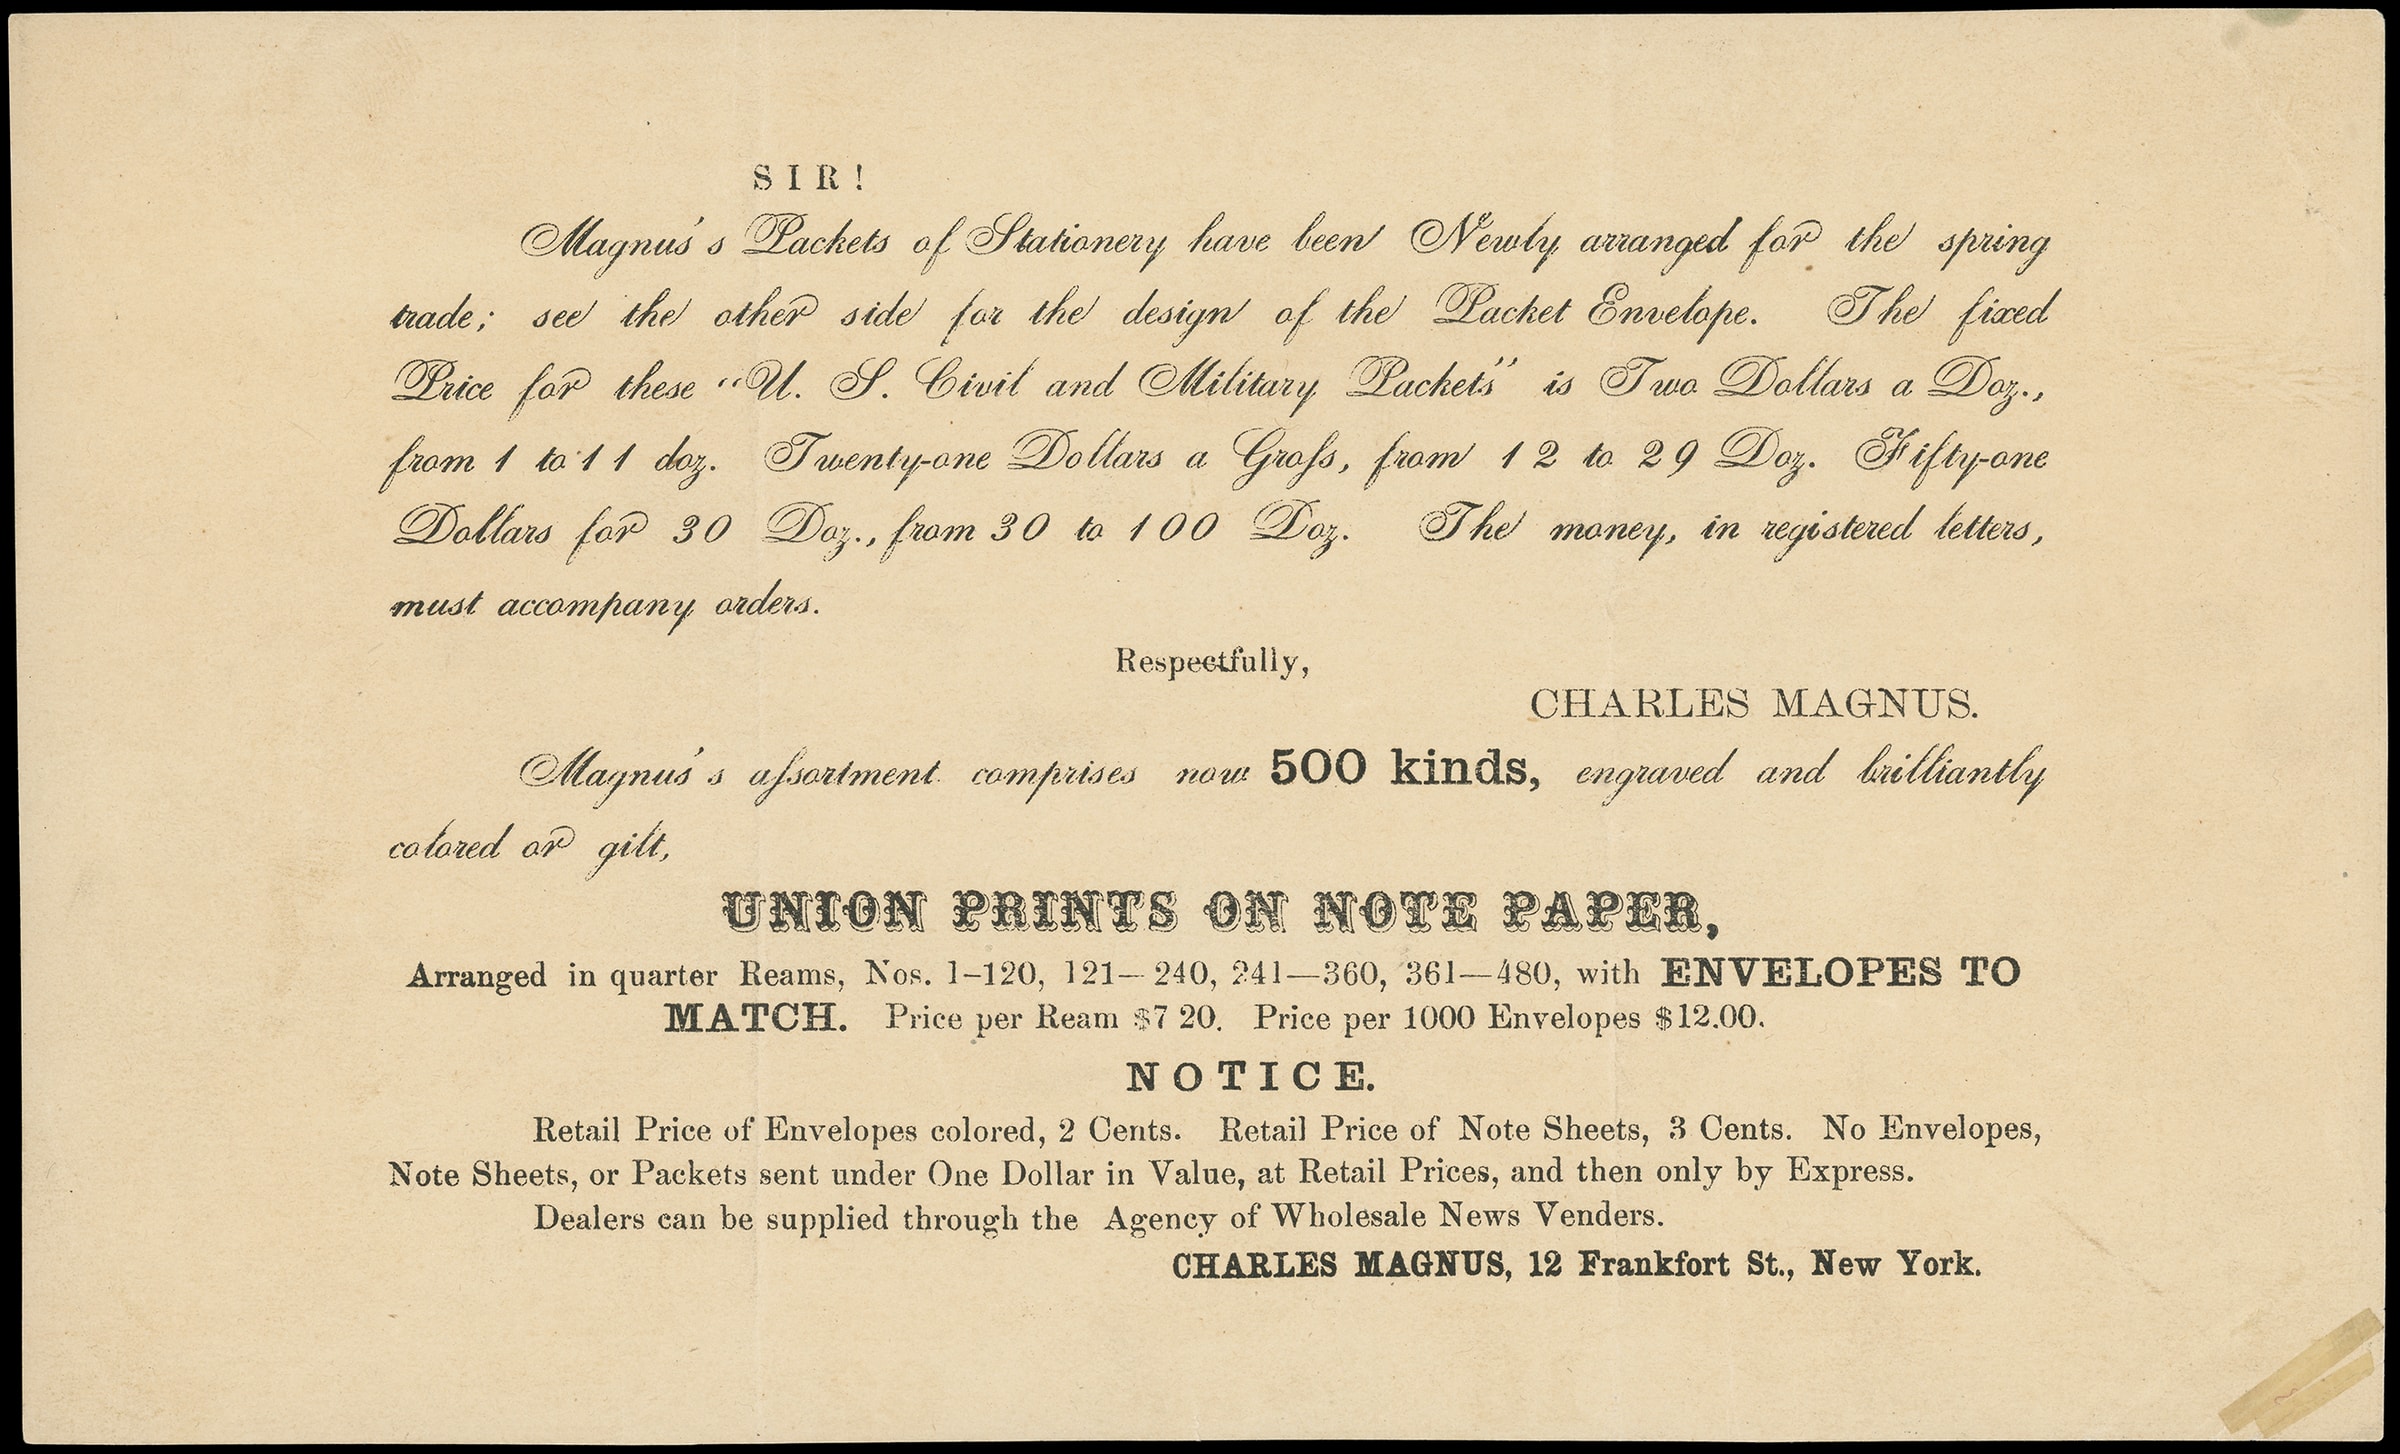 SIR!
Magnus's Packets of Stationery have been Newly arranged for the spring
trade; see the other side for the design of the Packet Envelope. The fixed
Price for these "U. S. Civil and Military Packets" is Two Dollars a Doz.,
from 1 to 11 doz. Twenty-one Dollars a Groſs, from 12 to 29 Doz. Fifty-one
Dollars for 30 Doz., from 30 to 100 Doz. The money, in registered letters,
must accompany orders.
Respectfully,
CHARLES MAGNUS.
Magnus's aſsortment comprises now 500 kinds, engraved and brilliantly
colored or gilt,
UNION PRINTS ON NOTE PAPER,
Arranged in quarter Reams, Nos. 1–120, 121—240, 241—360, 361—480, with ENVELOPES TO
MATCH. Price per Ream $7 20. Price per 1000 Envelopes $12.00.
NOTICE.
Retail Price of Envelopes colored, 2 Cents. Retail Price of Note Sheets, 3 Cents. No Envelopes,
Note Sheets, or Packets sent under One Dollar in Value, at Retail Prices, and then only by Express.
Dealers can be supplied through the Agency of Wholesale News Venders.
CHARLES MAGNUS, 12 Frankfort St., New York.